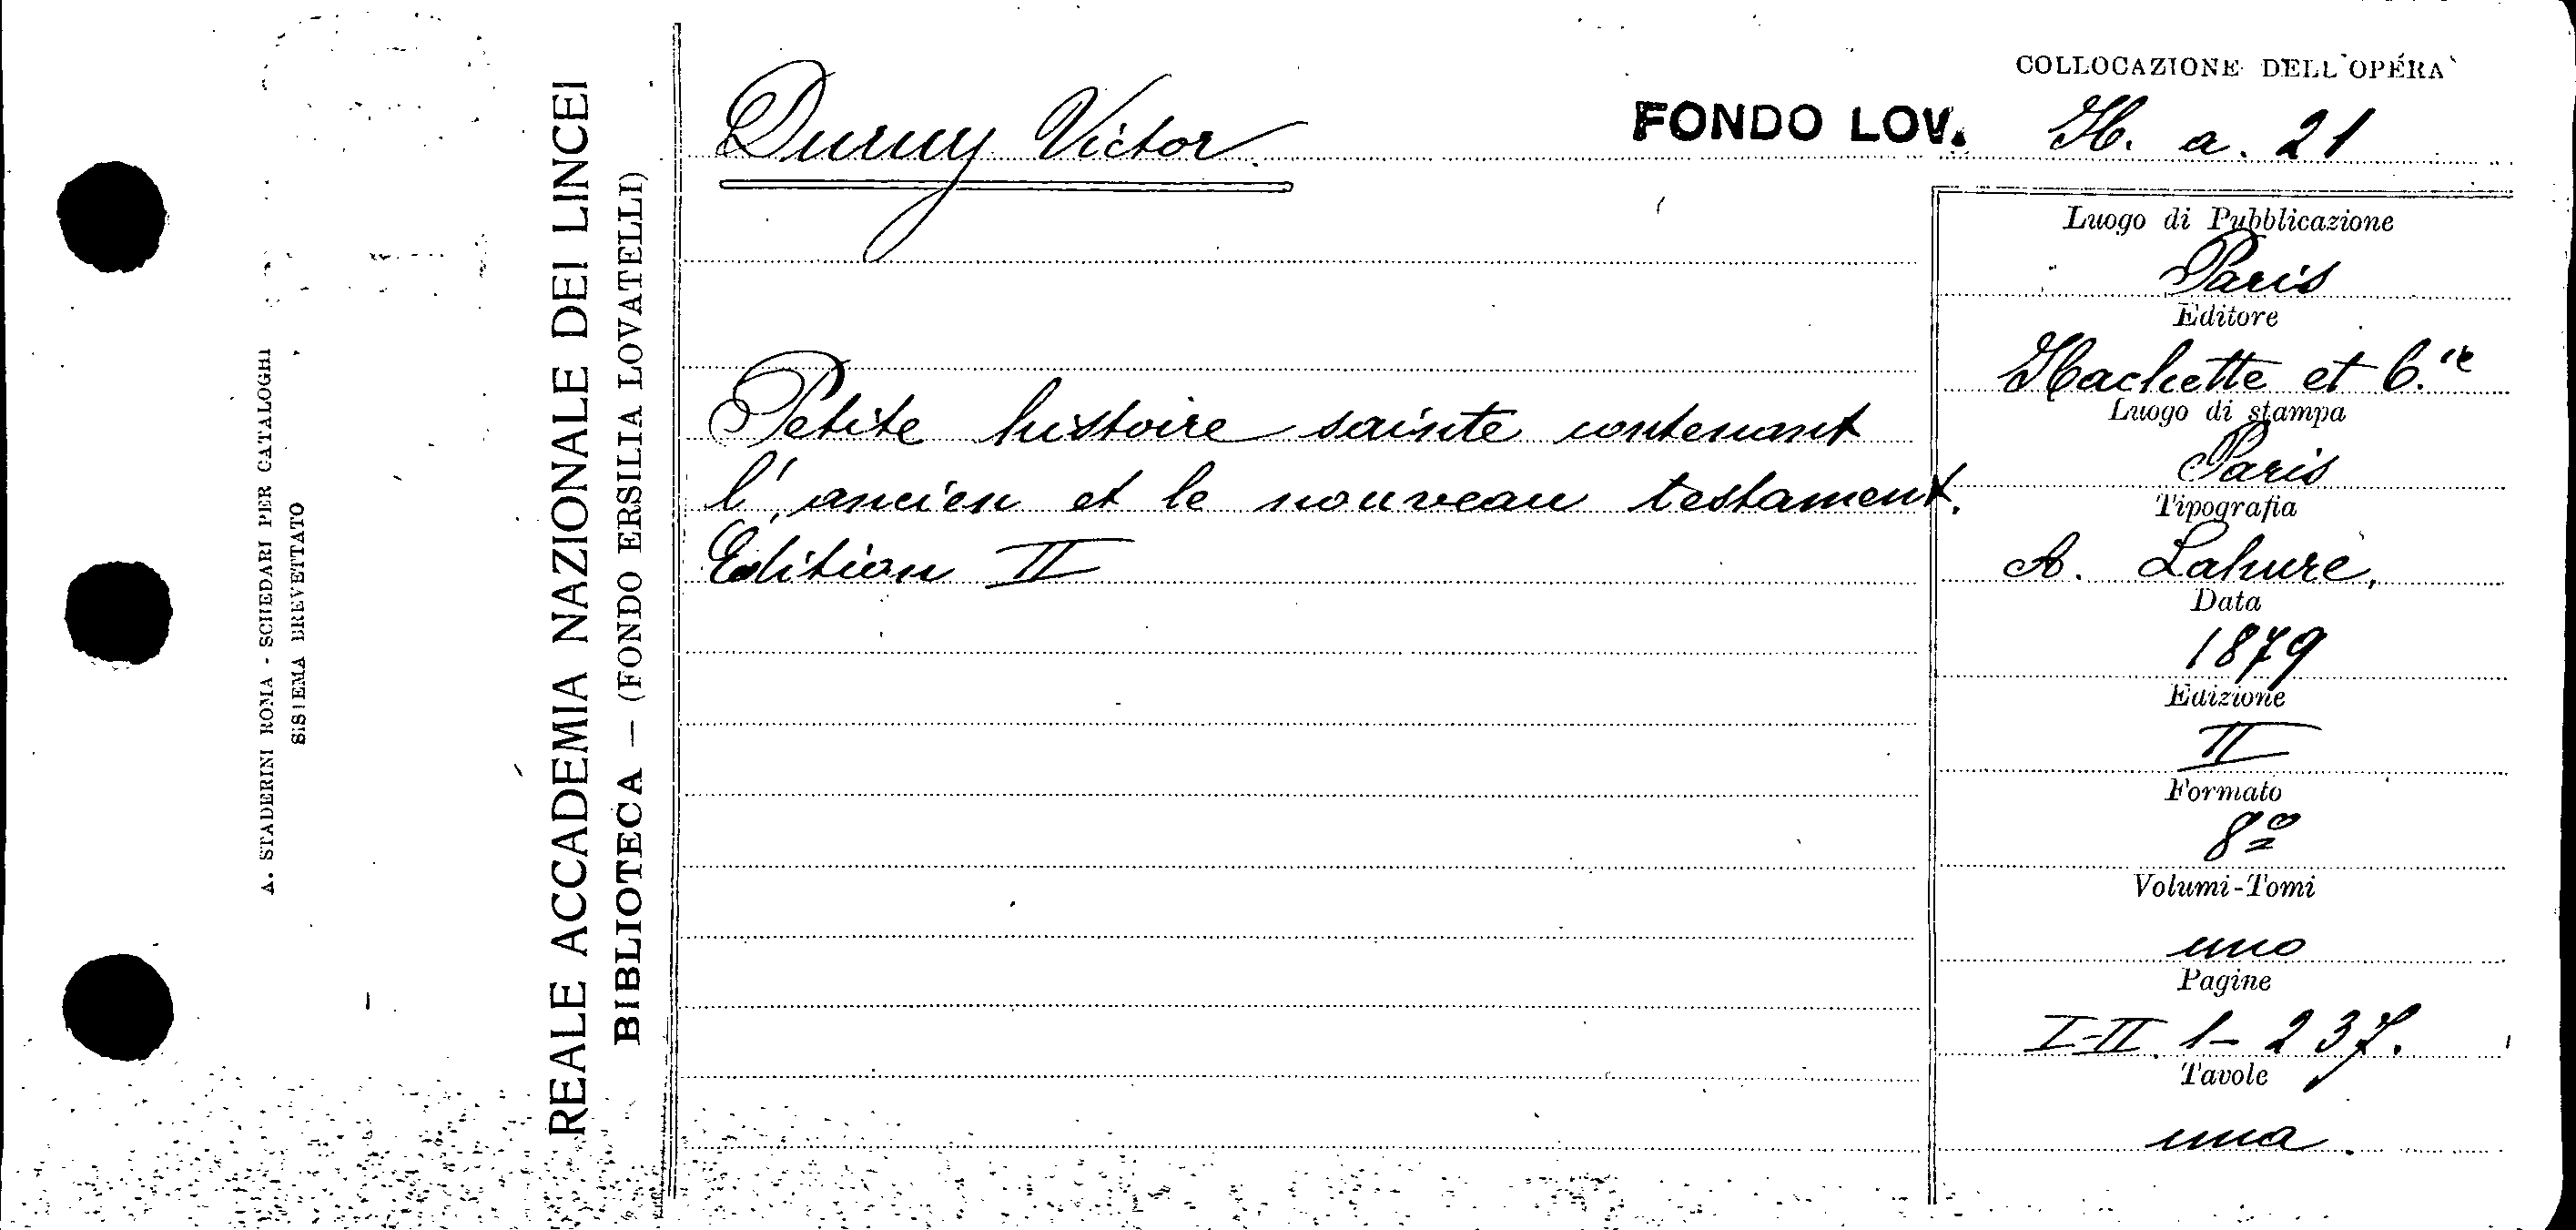 A. STADERINI ROMA - SCHEDARI PER CATALOGHI
SISTEMA BREVETTATO
REALE ACCADEMIA NAZIONALE DEI LINCEI
BIBLIOTECA — (FONDO ERSILIA LOVATELLI)
Duruy Victor
Petite histoire sainte contenant
l'ancien et le nouveau testament.
Edition II
COLLOCAZIONE DELL'OPERA
FONDO LOV. H. a. 21
Luogo di Pubblicazione
Paris
Editore
Hachette et C.ie
Luogo di stampa
Paris
Tipografia
A. Lahure,
Data
1879
Edizione
II
Formato
8º
Volumi-Tomi
uno
Pagine
I-II. 1-237.
Tavole
una.